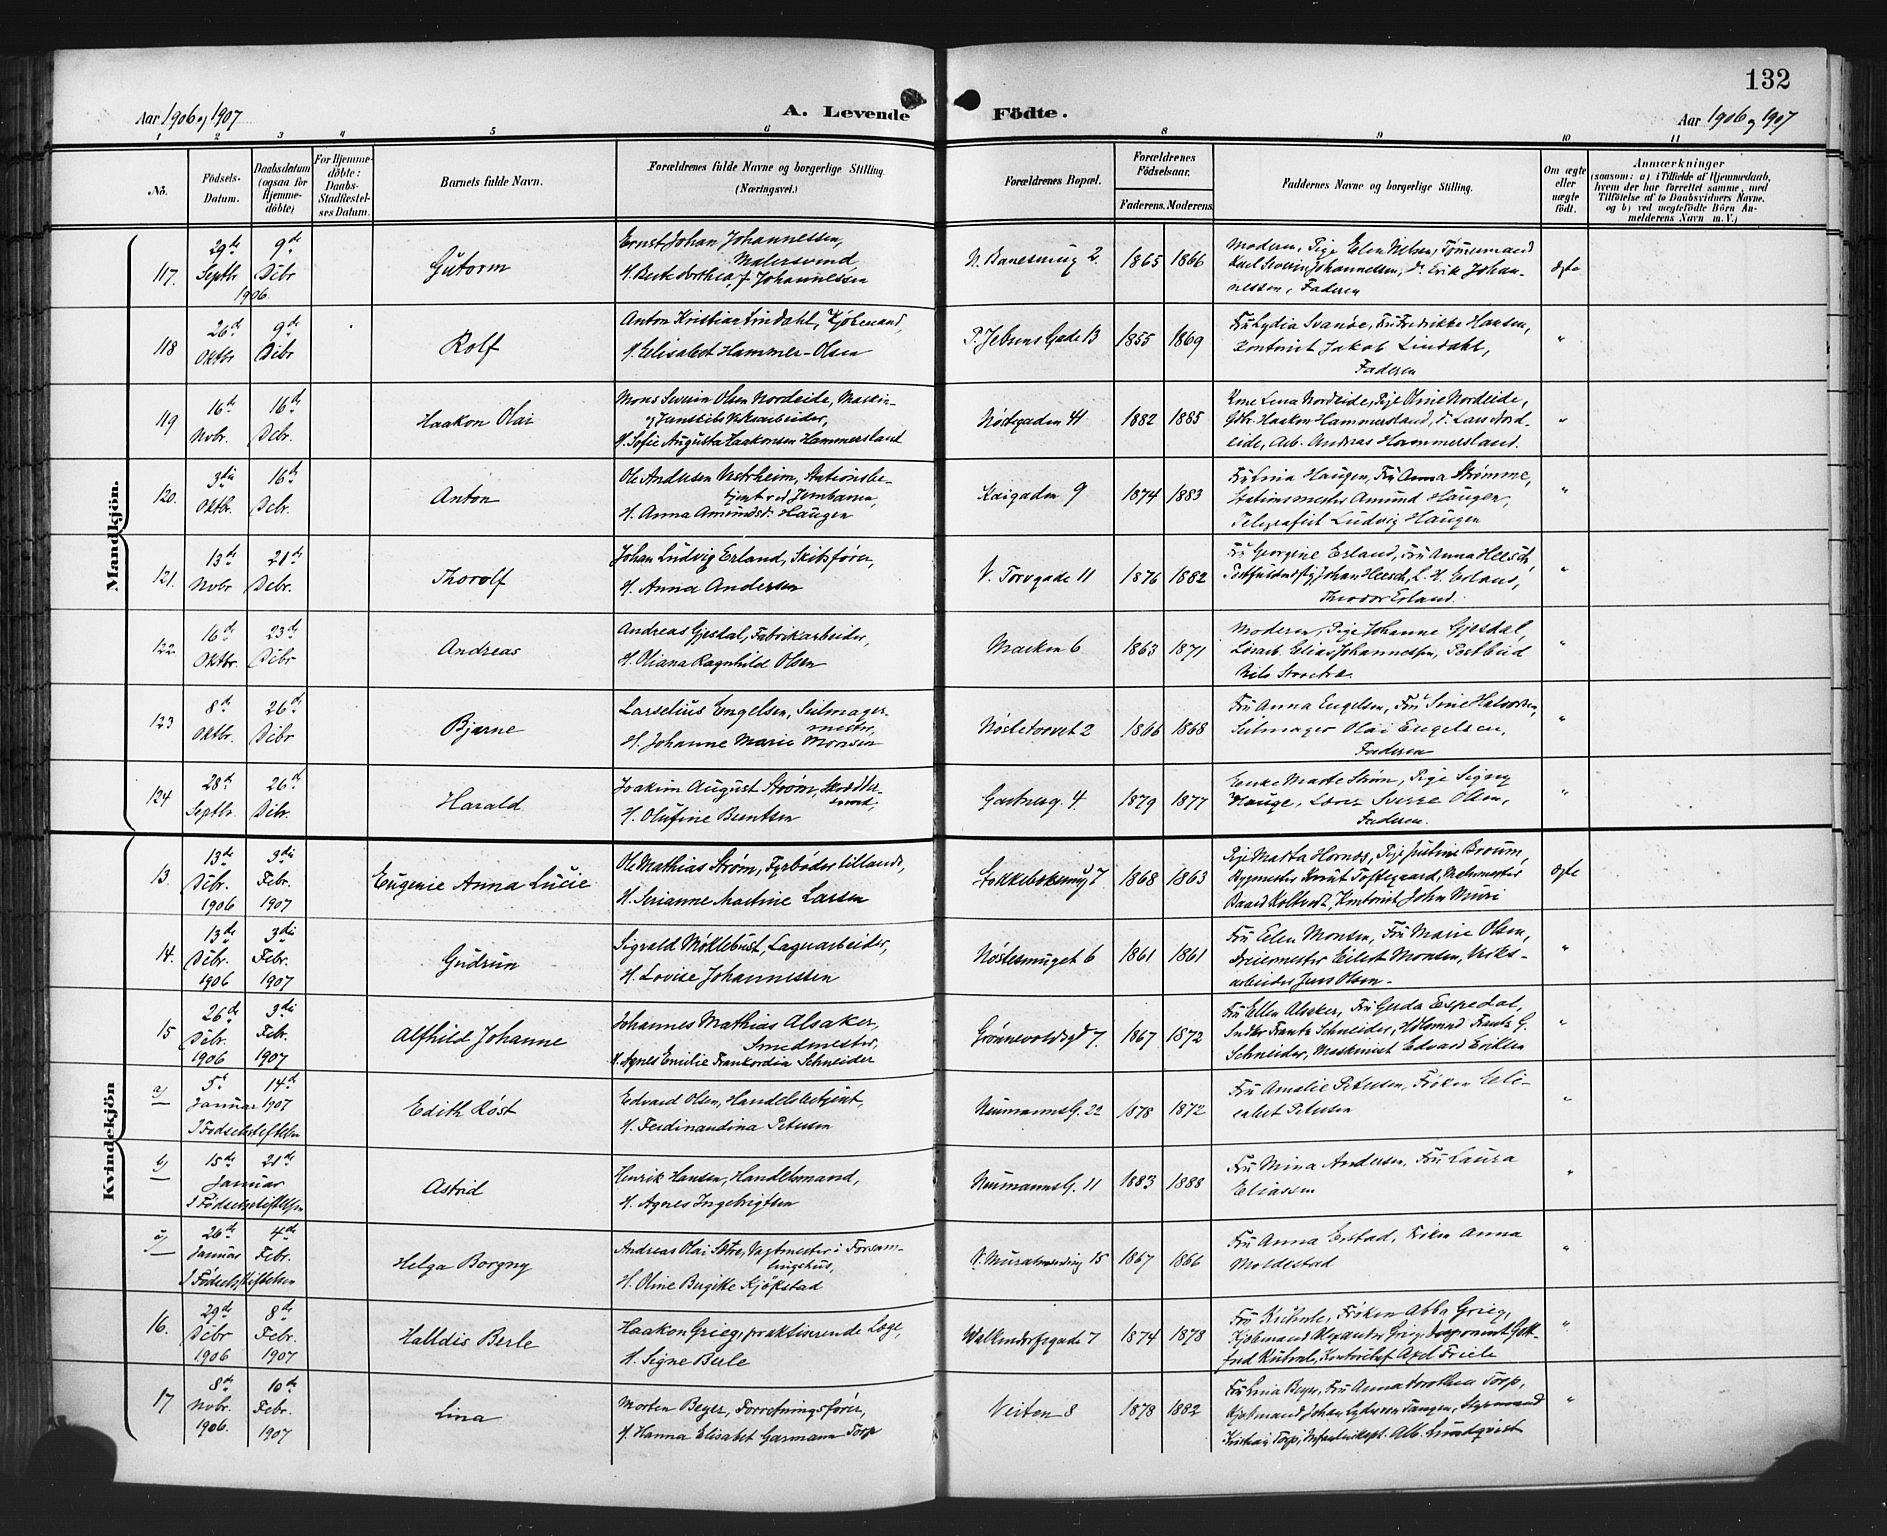 132
Aar 1906 og 1907
A. Levende Födte.
Aar 1906 og 1907
1 2 3 4 5 6 8 9 10 11
No. Födsels-Datum. Daabsdatum (ogsaa for Hjemme-döbte) For Hjemme-döbte: Daabs-Stadfæstel-ses Datum. Barnets fulde Navn. Forældrenes fulde Navne og borgerlige Stilling. (Næringsvei.) Forældrenes Bopæl. Forældrenes Födselsaar. Faderens. Moderens. Faddernes Navne og borgerlige Stilling. Om ægte eller uægte födt. Anmærkninger (saasom: a) i Tilfælde af Hjemmedaab, hvem der har forrettet samme, med Tilföielse af to Daabsvidners Navne. og b) ved uægtefödte Börn An-melderens Navn m. V.)
Mandkjön.
117. 29de Septbr 1906 9de Dcbr Gutorm
Ernst Johan Johannessen, Malersvend
H. Berte Dorthea f. Johannessen
1865 1866
Modern, Pige Elen Nilsen,
Karl Severin Johannessen, Dr. Erik Johan-
nessen, Faderen
ægte
118 26de Oktbr 9de Dcbr Rolf
Anton Kristian Lindahl, Kjøbmand,
H. Elisabet Hammer-Olsen
P. Jebsens Gade 13 1855 1869
Fru Lydia Svanøe, Fru Fredrikke Hansen,
Kontorist Jakob Lindahl,
Faderen
"
119 16de Novbr. 16de Dcbr. Haakon Olai
Mons Severin Olsen Nordeide, Maskin-
H. Sofie Augusta Haakonsen Hammersland
Nøstegaden 41 1882 1885
Kone Lena Nordeide, Pige Oline Nordeide,
Gbr. Haakon Hammersland, Dr. Lars Nord-
eide, Arb. Andreas Hammersland.
"
120. 3die Oktbr. 16de Dcbr. Anton
Ole Andersen Vestrheim, Stationsbe-
tjent ved Jernbanen,
H. Anna Amundsdr. Haugen
Kaigaden 9 1874 1883
Fru Lina Haugen, Fru Anna Strømme,
Stationsmester Amund Haugen,
Telegrafist Ludvig Haugen
"
121. 13de Novbr 21de Dcbr. Thorolf
Johan Ludvig Erland, Skibsfører,
H. Anna Andersen
V. Torvgade 11 1876 1882
Fru Georgine Erland, Fru Anna Heesch,
Johan Heesch, L. H. Erland,
Theodor Erland.
"
122. 16de Oktbr. 23de Dcbr Andreas
Andreas Gjesdal, Fabrikarbeider,
H. Oliana Ragnhild Olsen
Marken 6 1863 1871
Moderen, Pige Johanne Gjesdal,
Løsarb. Elias Johannessen, Postbud
Nils
"
123 8de Oktbr. 26de Dcbr Bjarne
Larselius Engelsen, Seilmager-
mester,
H. Johanne Marie Monsen
Nøstetorvet 2 1866 1868
Fru Anna Engelsen, Fru Sine Halvorsen,
Seilmager Olai Engelsen,
Faderen
"
124 28de Septbr. 26de Dcbr. Harald
Joakim August Strøm, Skrædder-
svend,
H. Olufine Berntsen
4. 1879 1877
Enke Marte Strøm, Pige Signy
Hauge, Sverre Olsen,
Faderen.
"
Kvindekjön
13. 13de Dcbr. 1906 3die Febr. 1907 Eugenie Anna Lucie
Ole Mathias Strøm, Fyrbøder tillands,
H. Serianne Martine Larsen
7 1868 1863
Pige Marta Hornøs, Pige Justine Broum,
Bygmester Knut Toftegaard,
Kontorist John Muri
ægte
14. 13de Dcbr. 1906 3die Febr. 1907 Gudrun
Sigvald Møklebust, Lagerarbeider,
H. Lovise Johannessen
Nøstesmuget 6 1861 1861
Fru Elen Monsen, Fru Marie Olsen,
Dreiermester Eilert Monsen, Verks-
arbeider Jens Olsen.
"
15 26de Dcbr. 1906 3die Febr. 1907 Alfhild Johanne
Johannes Mathias Alsaker,
Smedmester,
H. Agnes Emilie Frankordia Schneider
Grønnevoldsgd 7. 1867 1872
Fru Ellen Alsaker, Fru Gerda Espedal,
Frantz Schneider, Frantz G.
Schneider, Maskinist Edvard Eriksen
"
a) 5te Januar 14de 1907 I Fødselsstiftelsen Edith Røst
Edvard Olsen, Handelsbetjent,
H. Ferdinandina Petersen
Neumanns G. 22 1878 1872
Fru Amalie Petersen, Frøken Eli-
sabet Petersen
"
b) 15de 21de Januar I Fødselsstiftelsen Astrid
Henrik Hansen, Handelsmand,
H. Agnes Ingebrigtsen
Neumanns G. 11 1883 1888
Fru Mina Andersen, Fru Laura
Eliassen
"
c) 26de Januar 4de Febr. I Fødselsstiftelsen Helga Borgny
Andreas Olai Sætre, Vagtmester i Forsam-
lingshus,
H. Oline Birgitte Kjøkstad
15 1867 1866
Fru Anna Erstad, Frøken Anna
Moldestad
"
16. 29de Dcbr 1906 8de Febr. 1907 Halldis Berle
Haakon Grieg, praktiserende Læge,
H. Signe Berle
Walkendorfsgade 7 1874 1878
Fru Kuhnle, Frøken Abba Grieg,
Kjøbmand Alexander Grieg, Disponent Gott-
fred Kuhnle, Kontorchef Axel Friele
"
17 8de Novbr. 1906. 10de Febr. 1907 Lina
Morten Beyer, Forretningsfører,
H. Hanna Elisabet Garmann Torp
Veiten 8 1878 1882
Fru Lina Beyer, Fru Anna Dorothea Torp,
Kjøbmand Johan Lyder von Tangen, Styrmand
Kristian Torp, Infanterikapt. Alb. Lundqvist
"